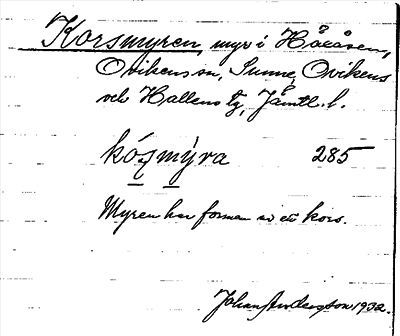 Korsmyren, myr i Håxåsen,
Ovikens sn, Sunne, Ovikens
och Hallens tg, Jämtl. l.
kóșmýra 285
Myren har formen av ett kors.
Johan Anderson 1932.